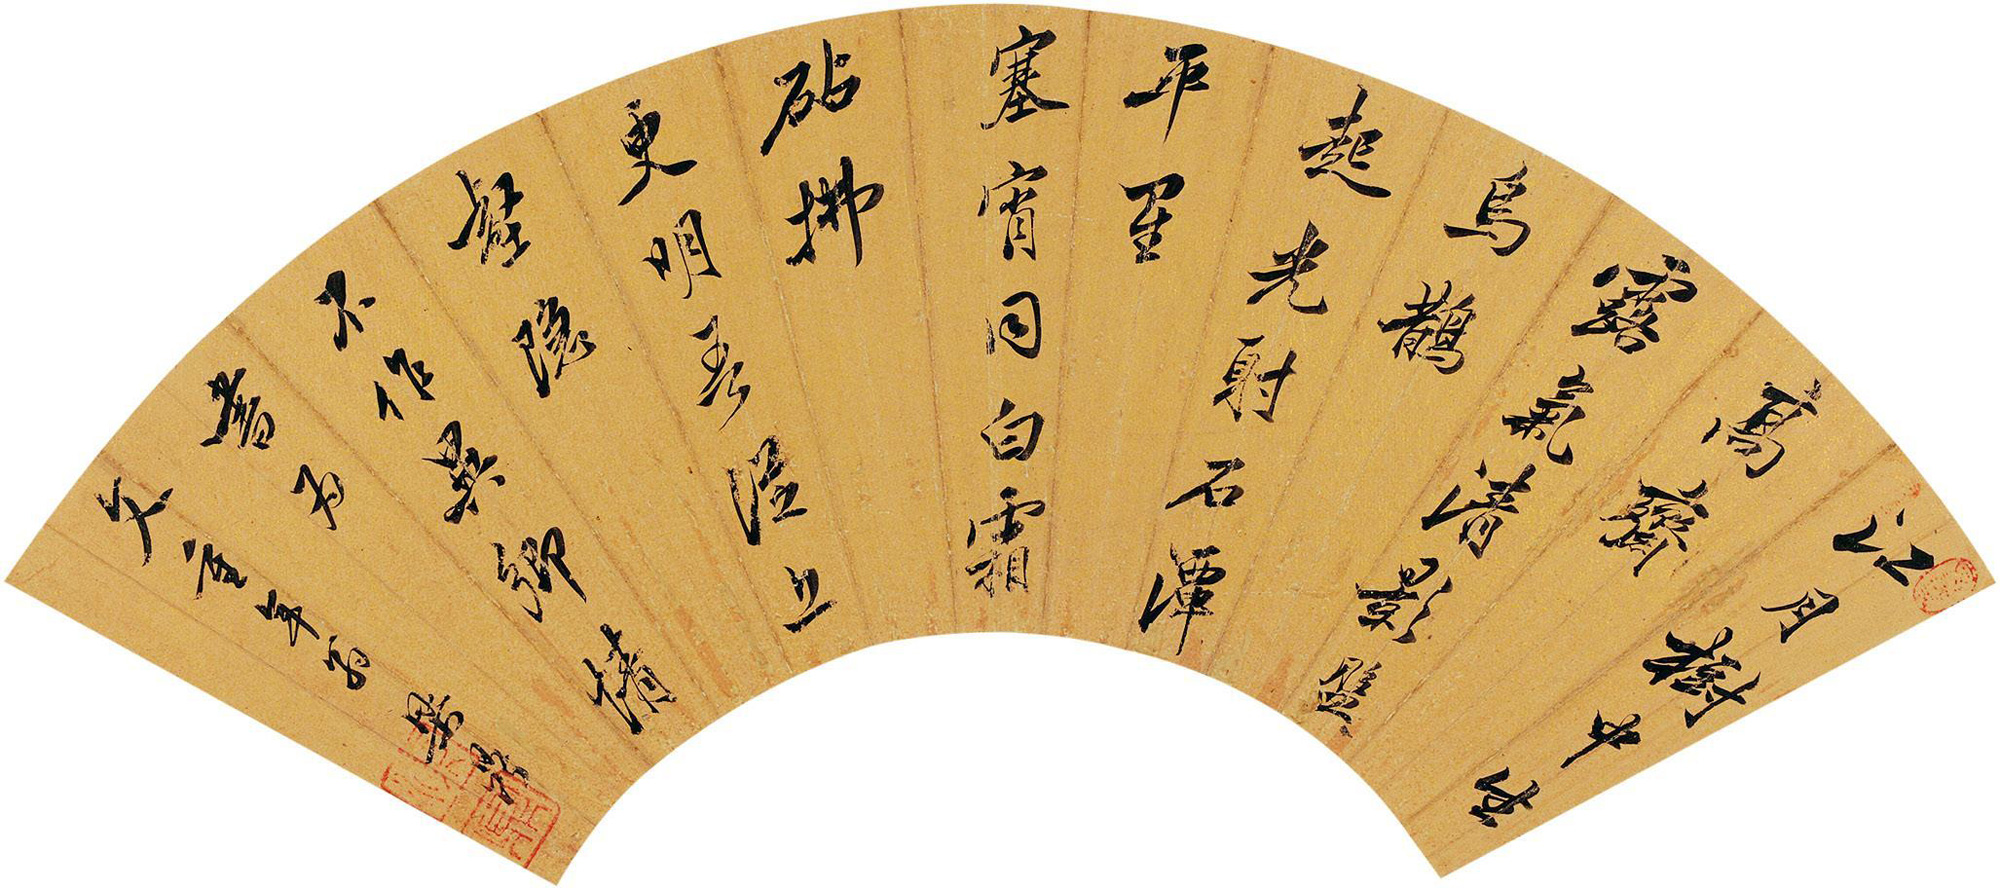 江月樹中出
高齋
露氣清影盤
烏鵲
起光射石潭
平星
塞宵同白霜
砧拂
更明上
隱
不作異鄉情
書為
年翁